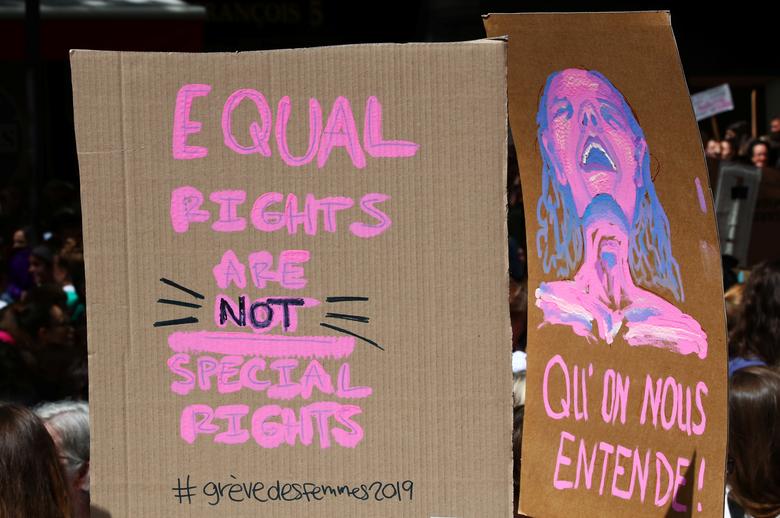 RANÇOIS 5
EQUAL
RIGHTS
ARE
NOT
SPECIAL
RIGHTS
#grèvedesfemmes2019
QU'ON NOUS
ENTENDE!